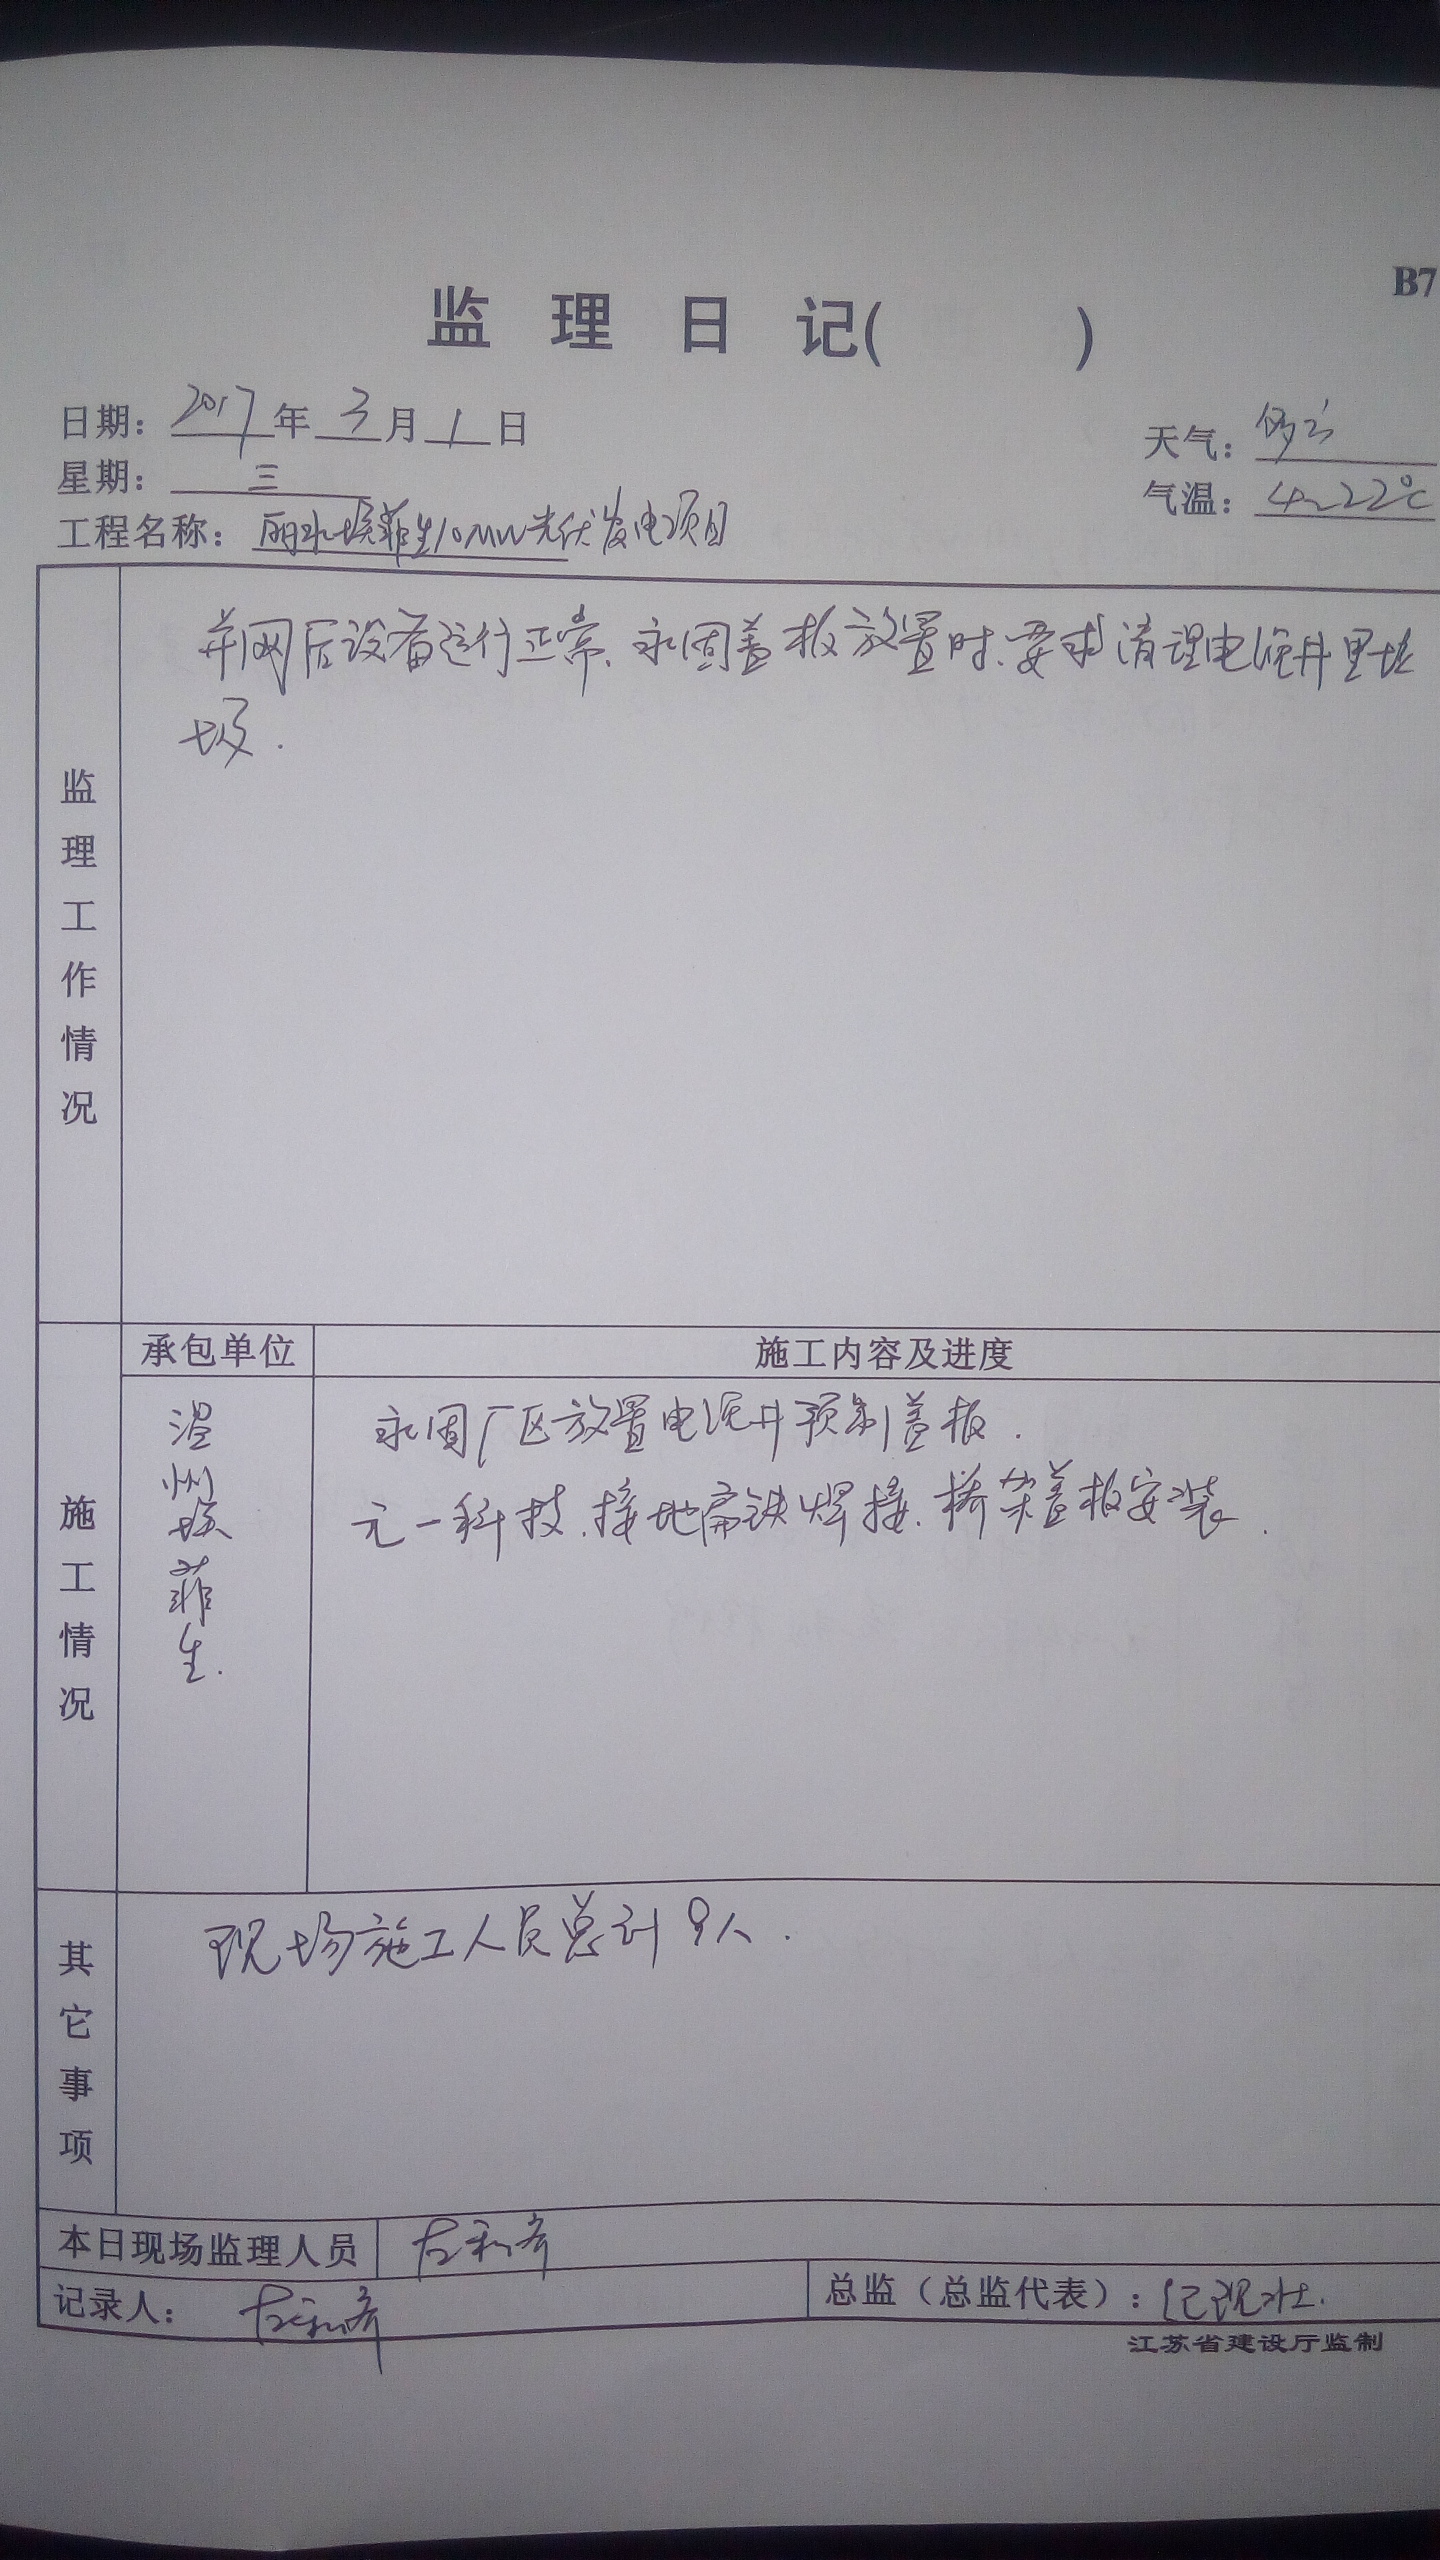 B7
监 理 日 记( )
日期: 2017 年 3 月 1 日
天气: 多云
星期: 三
气温: 4~22℃
工程名称: 丽水埃菲生10MW光伏发电项目
监理工作情况
并网后设备运行正常、永固盖板放置时、要求清理电缆井里垃
圾.
施工情况
承包单位
施工内容及进度
温州埃菲生.
永固厂区放置电缆井预制盖板.
元一科技.接地扁铁焊接、桥架盖板安装.
其它事项
现场施工人员总计9人.
本日现场监理人员
记录人:
总监（总监代表）:
江苏省建设厅监制